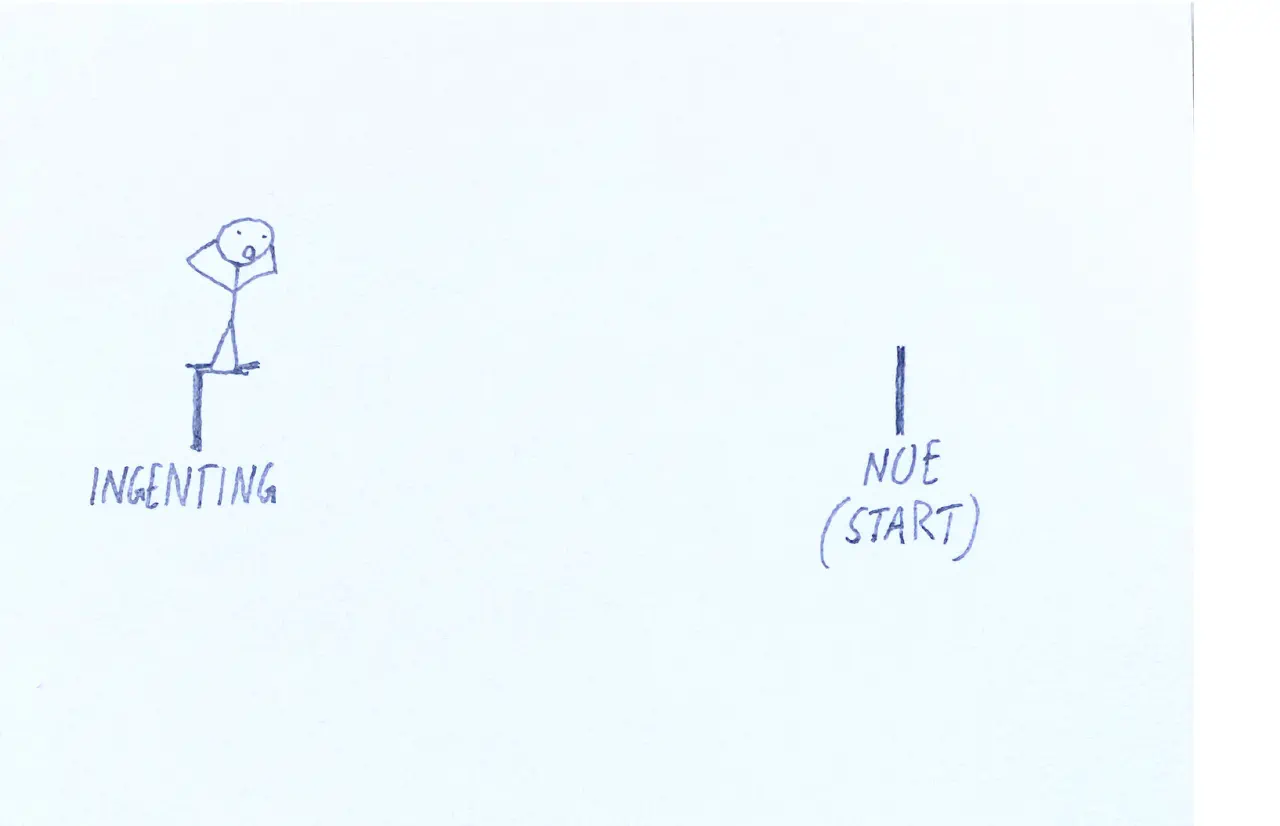 INGENTING
NOE
(START)